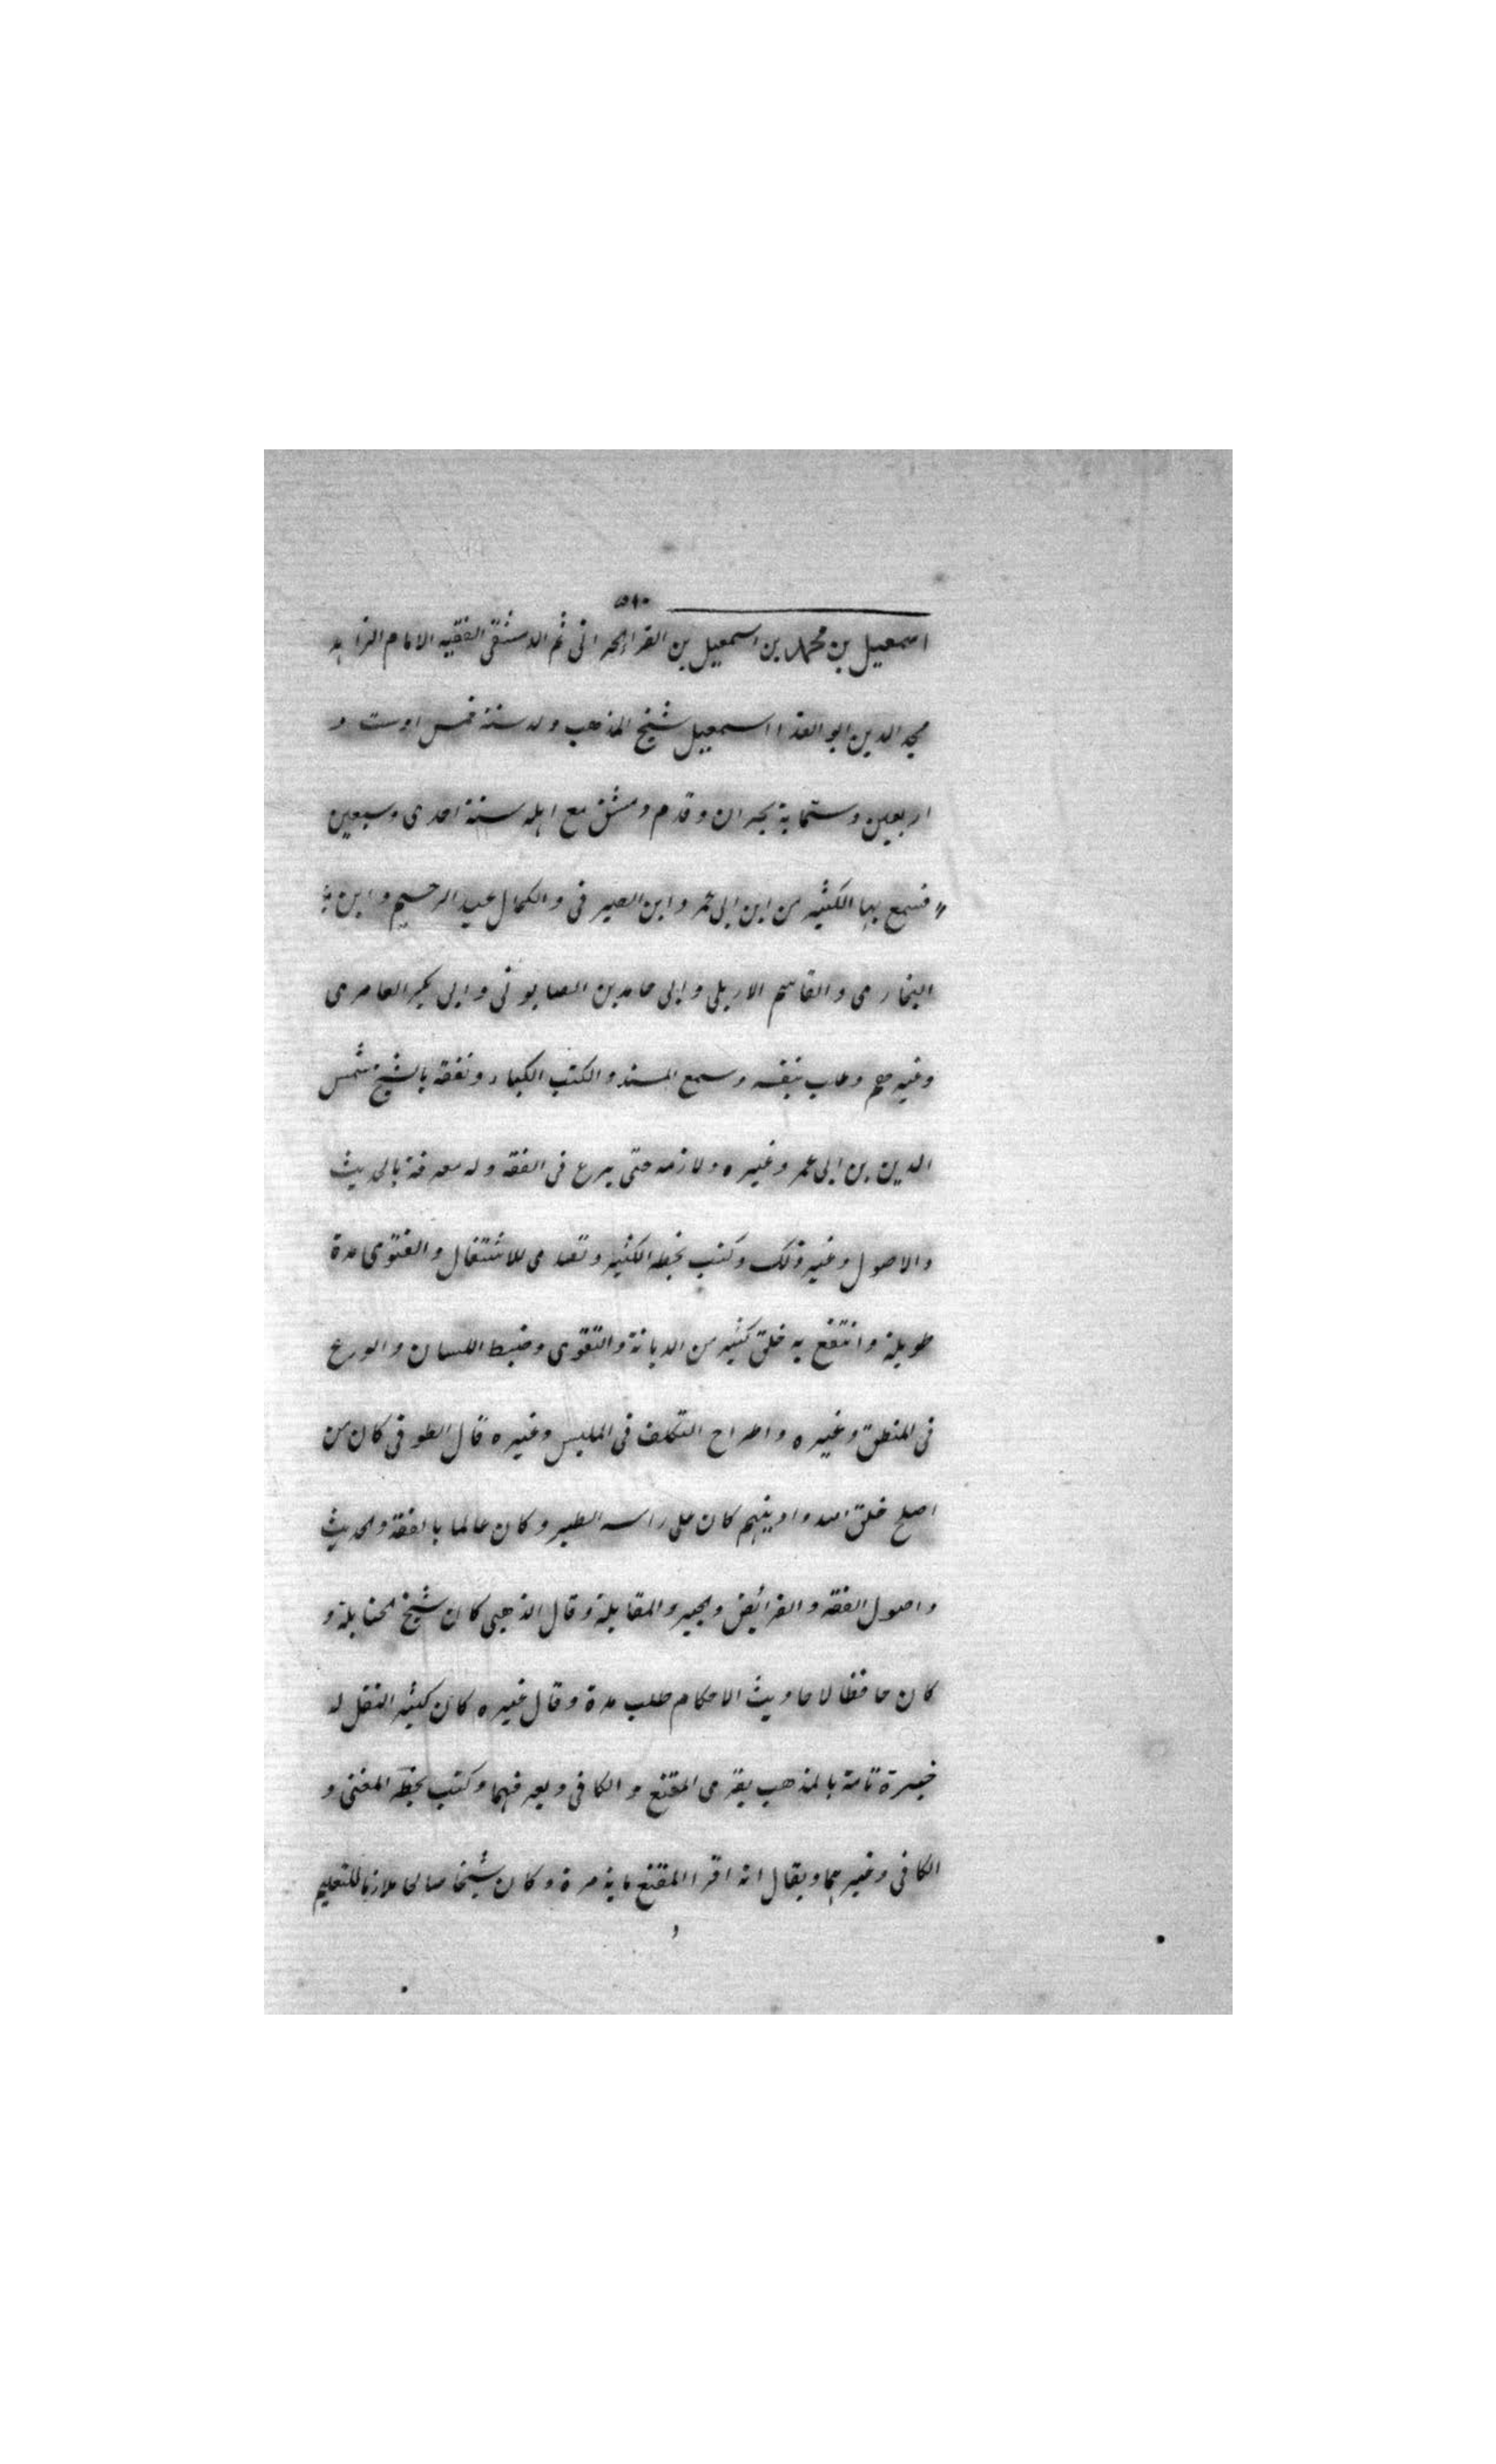 ٥١٠
اسمعيل بن محمد بن اسمعيل بن الفرا الحرانى ثم الدمشقى الفقيه الامام الزاهد
مجد الدين ابو الفدا اسمعيل شيخ المذهب ولد سنة خمس اوست و
اربعين وستماية بحران وقدم دمشق مع اهله سنة احدى وسبعين
فسمع بها الكثير من ابن ابى عمر وابن الصيرفى والكمال عبد الرحيم وابن
البخارى والقاسم الاربلى وابى حامد بن الصابونى وابى بكر العامرى
وغيرهم وطلب بنفسه وسمع المسند والكتب الكبار وتفقه بالشيخ شمس
الدين بن ابى عمر وغيره ولازمه حتى برع فى الفقه وله معرفة بالحديث
والاصول وغير ذلك وكتب بخطه الكثير وتصدى للاشتغال والفتوى مدة
طويلة وانتفع به خلق كثير من الديانة والتقوى وضبط اللسان والورع
فى المنطق وغيره واطراح التكلف فى الملبس وغيره قال الطوفى كان من
اصلح خلق الله وادينهم كان على راسه الطير وكان عالما بالفقه والحديث
واصول الفقه والفرائض والجبر والمقابلة وقال الذهبى كان شيخ الحنابلة و
كان حافظا لاحاديث الاحكام طلب مدة وقال غيره كان كثير النقل له
خبرة تامة بالمذهب يقرى المقنع والكافى ويعرفهما وكتب بخطه المغنى و
الكافى وغيرهما ويقال انه اقرا المقنع ماية مرة وكان شيخا صالحا ملازما للتعليم
و